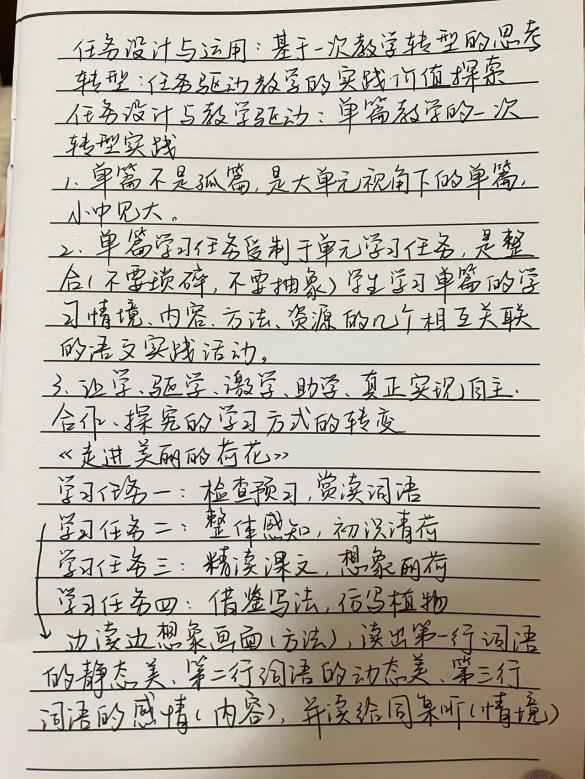 任务设计与运用：基于一次教学转型的思考
转型：任务驱动教学的实践价值探索
任务设计与教学驱动：单篇教学的一次
转型实践
1、单篇不是孤篇，是大单元视角下的单篇，
小中见大。
2、单篇学习任务受制于单元学习任务，是整
合（不要琐碎，不要抽象）学生学习单篇的学
习情境、内容、方法、资源的几个相互关联
的语文实践活动。
3、让学、驱学、激学、助学、真正实现自主、
合作、探究的学习方式的转变
《走进美丽的荷花》
学习任务一：检查预习，赏读词语
学习任务二：整体感知，初识清荷
学习任务三：精读课文，想象丽荷
学习任务四：借鉴写法，仿写植物
边读边想象画面（方法），读出第一行词语
的静态美、第二行词语的动态美、第三行
词语的感情（内容），并读给同桌听（情境）